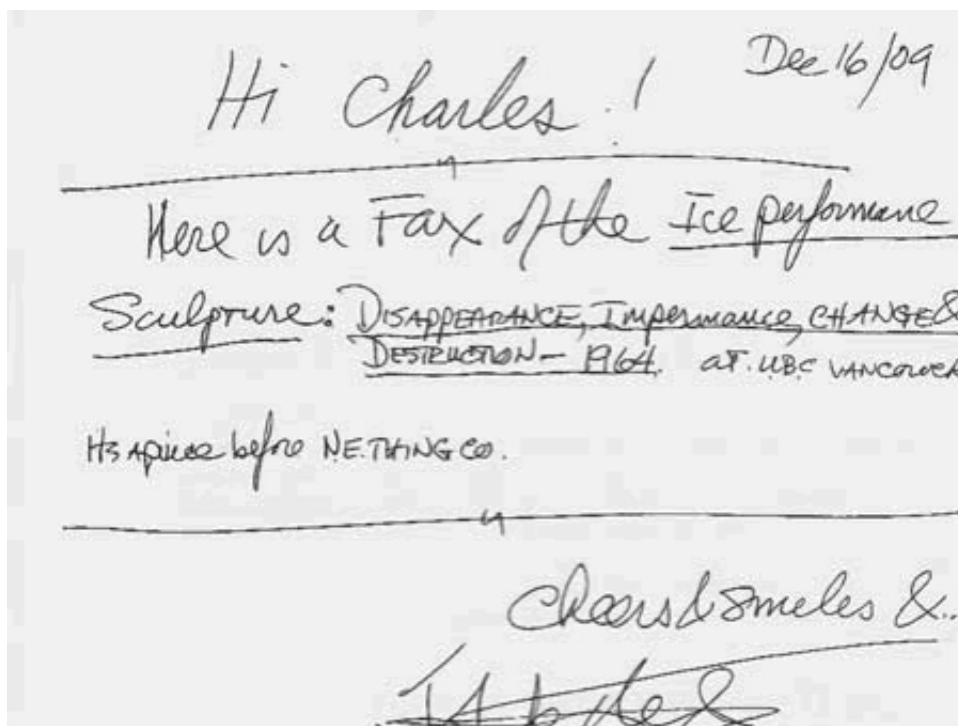 Dec 16/09
Hi Charles !
Here is a Fax of the Ice performane
Sculpture: DISAPPEARANCE, Impermance, CHANGE &
DESTRUCTION - 1964. aT. U.B.C VANCOUVER
Its a piece before N.E. THING CO.
Cheers & smiles & ..